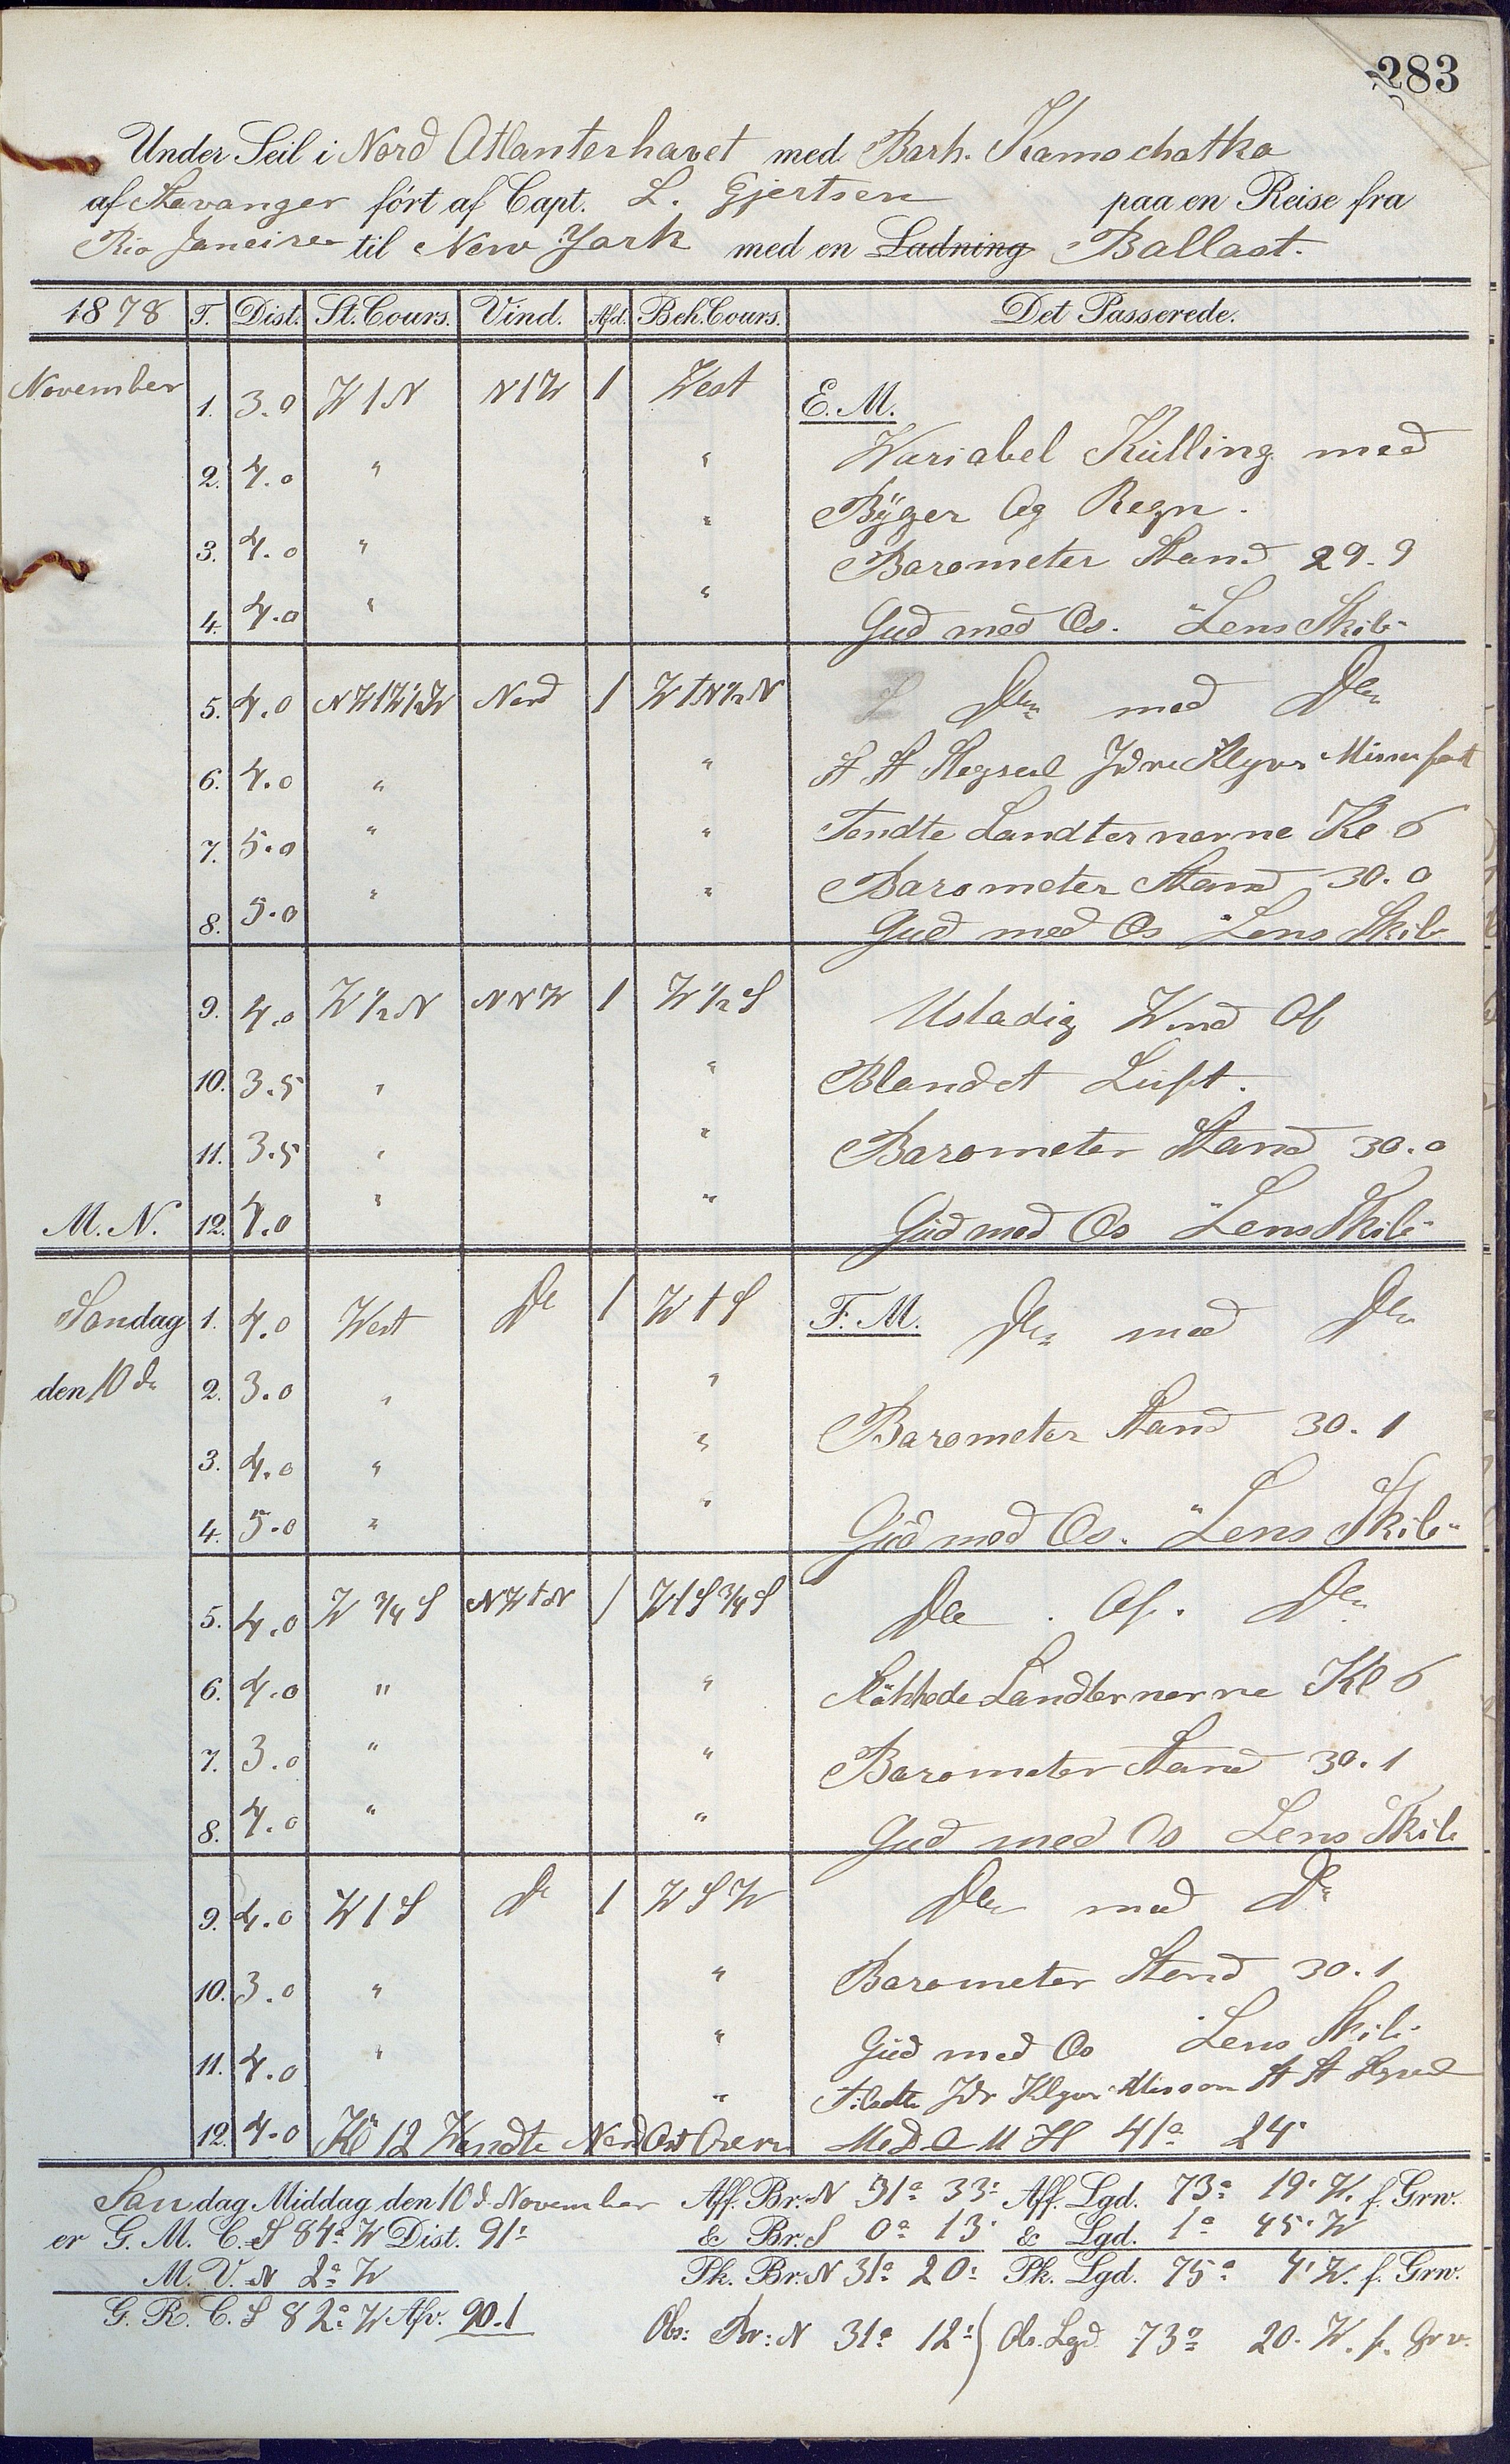 283
Under Seil i Nord Atlanterhavet med Bark. Kamschatka
af Stavanger ført af Capt. L. Gjertsen paa en Reise fra
Rio Janeiro til New York med en Ladning Ballast.
1878 T. Dist. St. Cours. Vind. Afd. Beh. Cours. Det Passerede.
November 1. 3.0 W t N N t W 1 West E. M.
2. 4.0 " " Wariabel Külling med
Byger Og Regn.
3. 4.0 " " Barometer Stand 29.9
4. 4.0 " " Gud med Os. "Lens Skib"
5. 4.0 NW t W ½ W Nord 1 W t N ½ N Do med Do
6. 4.0 " " St St Stagseil Jdre Klyver Missn fast
7. 5.0 " " Tendte Landternerne Kl 6
Barometer Stand 30.0
8. 5.0 " " Gud med Os "Lens Skib
9. 4.0 W ½ N NNW 1 W ½ S Ustadig Wind Og
10. 3.5 " " Blandet Luft.
11. 3.5 " " Barometer Stand 30.0
M. N. 12. 4.0 " " Gud med Os "Lens Skib"
Sondag 1. 4.0 West Do 1 W t S F. M. Do med Do
den 10 d. 2. 3.0 " "
Barometer Stand 30.1
3. 4.0 " "
4. 5.0 " " Gud med Os. "Lens Skib"
5. 4.0 W ¾ S NW t N 1 W t S ¾ S Do . Og . Do
6. 4.0 " " Slökkede Landternerne Kl 6
7. 3.0 " " Barometer Stand 30.1
8. 4.0 " " Gud med Os Lens Skib
9. 4.0 W t S Do 1 W S W Do med Do
10. 3.0 " " Barometer Stand 30.1
11. 4.0 " " Gud med Os "Lens Skib"
" Tilsatte Jdr Klyver Misson St St
12. 4.0 Kl 12 Wendte Nord Ost Over MeD. O U H 41° 24'
Sondag Middag den 10 d. November Aff. Br. N 31° 33' Aff. Lgd. 73° 19' W. f. Grw.
er G. M. C. S 84° W Dist. 91' & Br. S 0° 13' & Lgd. 1° 45' W
M. V. N 2° W Pk. Br. N 31° 20' Pk. Lgd. 75° 4' W. f. Grw.
G. R. C. S 82° W Afv. 90.1 Obs: Br: N 31° 12' Ob. Lgd. 73° 20. W. f. Grw.